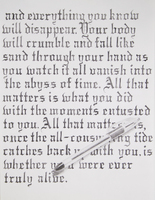 and everything you know
will disappear. Your body
will crumble and fall like
sand through your hand as
you watch it all vanish into
the abyss of time. All that
matters is what you did
with the moments entusted
to you. All that matters,
once the all-consuming tide
catches back up with you, is
whether you were ever
truly alive.